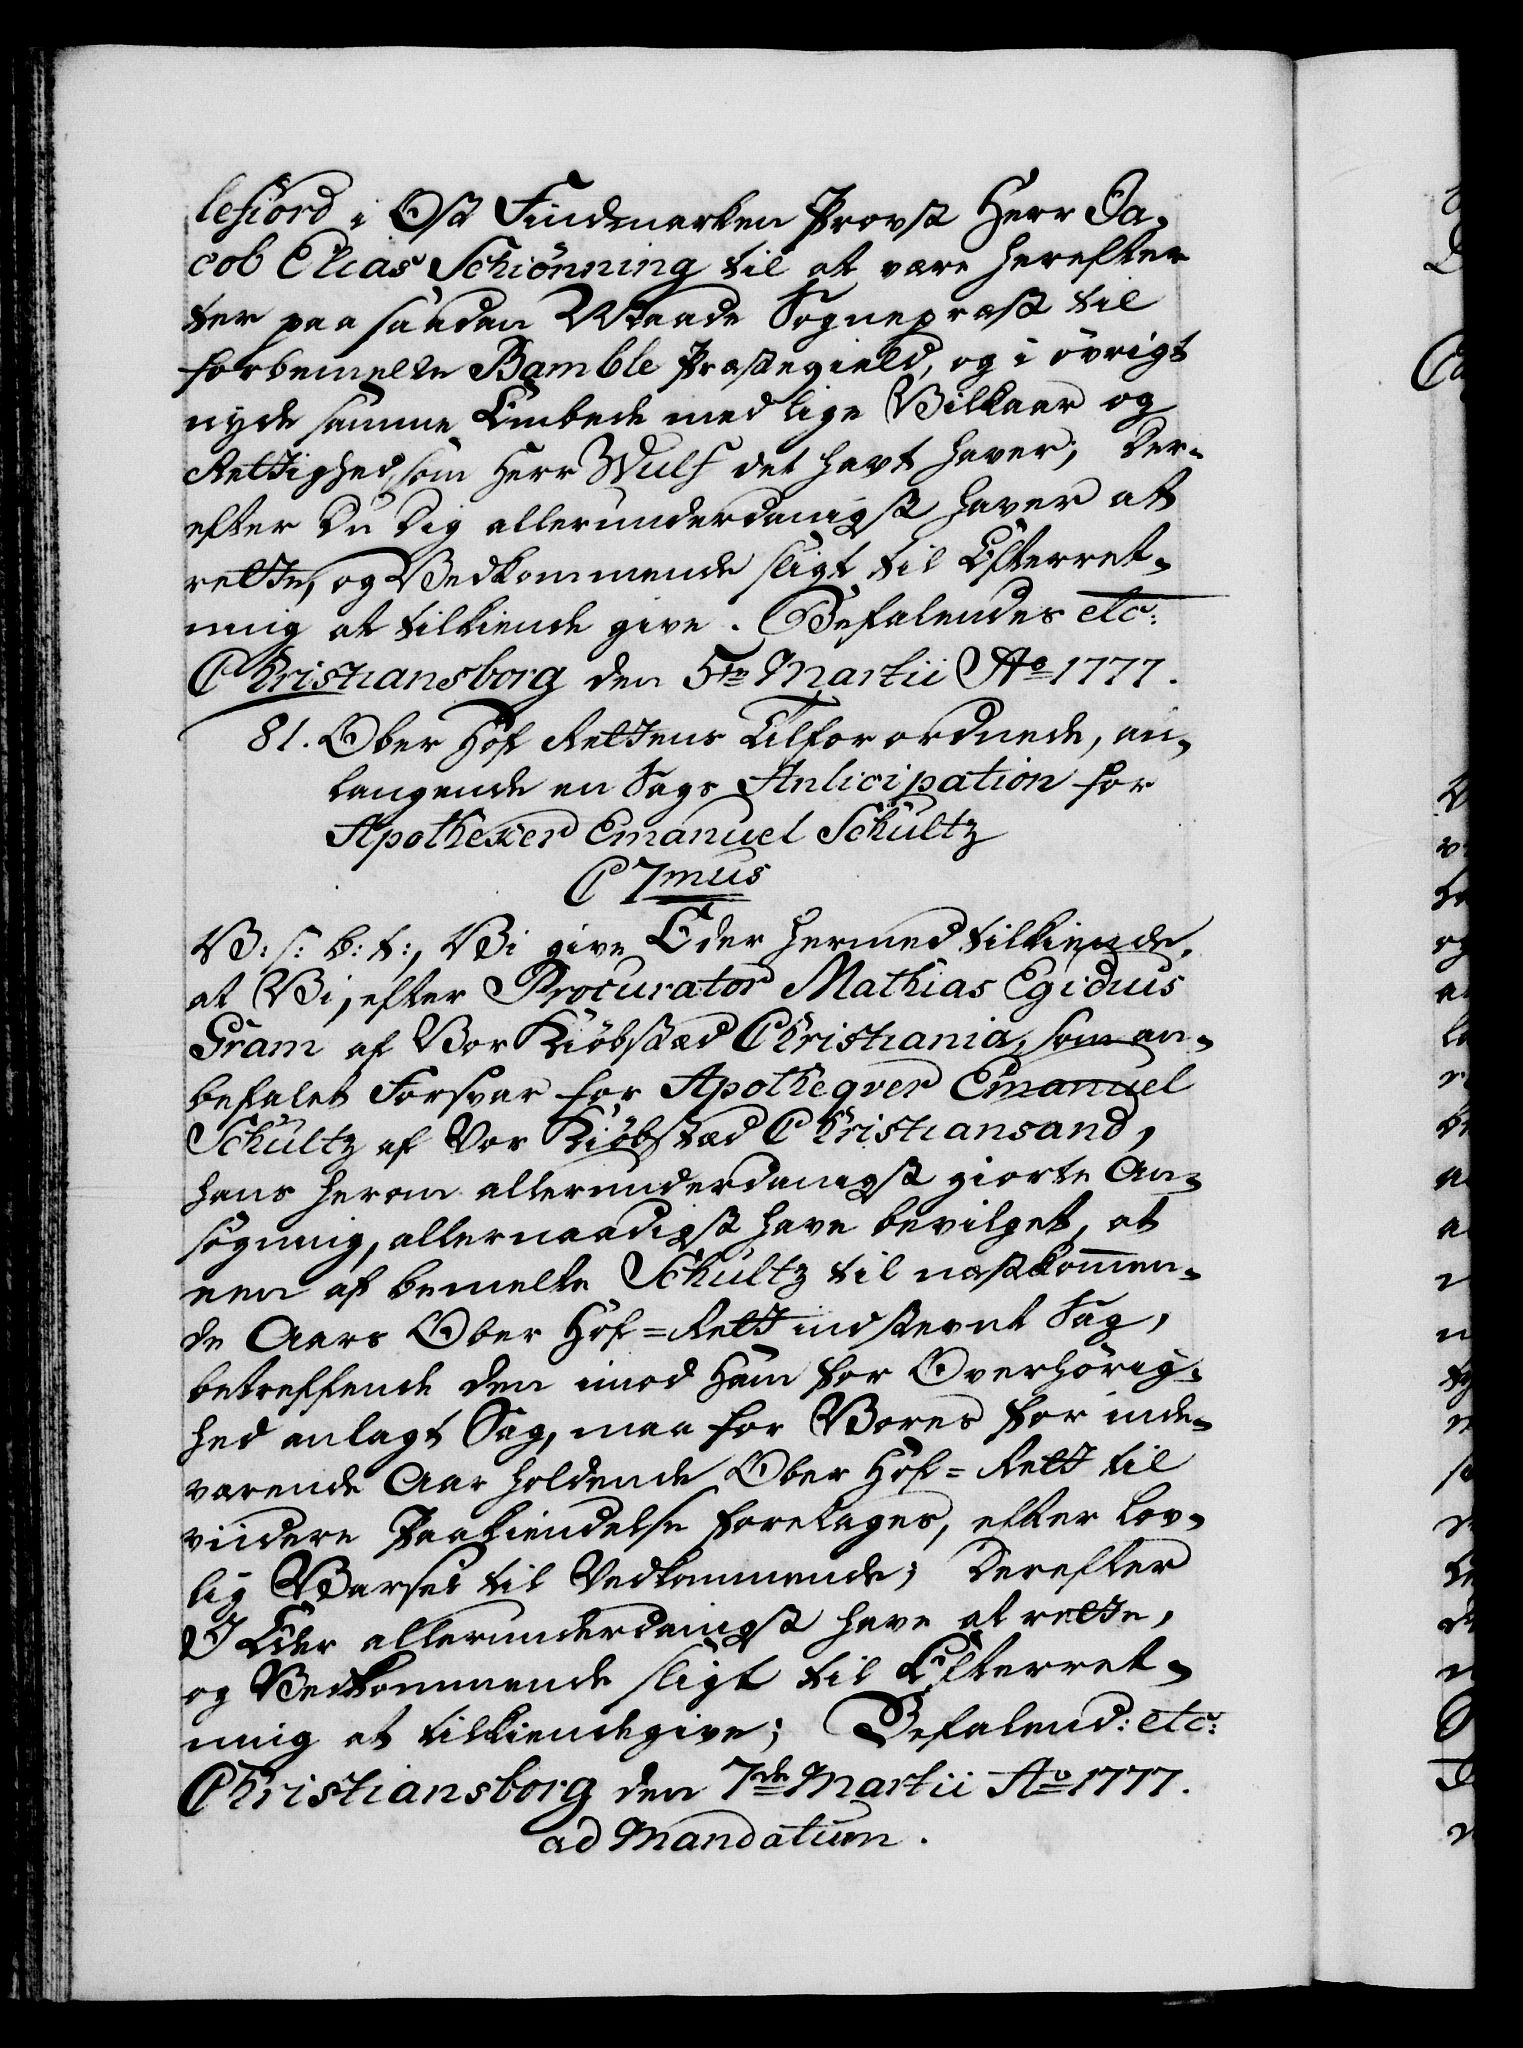 lefiord i Øst Findmarken Provst Herr Ja-
cob Elias Schiønning til at være herefter
ter paa saadan Maade Sognepræst til
forbemelte Bamble Præstegield, og i øvrigt
nyde samme Embede med lige Vilkaar og
Rettighed, som Herr Wulf det havt haver; Der-
efter Du Dig allerunderdanigst haver at
rette, og Vedkommende sligt til Efterret-
ning at tilkiende give. Befalendes etc:
Christiansborg den 5te Martii Ao 1777.
81. Ober Hof Rettens Tilforordnede, an-
langende en Sags Anticipation for
Apothexer Emanuel Schultz
C 7mus
V: s: b: t:, Vi give Eder hermed tilkiende,
at Vi, efter Procurator Mathias Egidius
Gram af Vor Kiøbstæd Christania, som an-
befalet Forsvar for Apotheqver Emanuel
Schultz af Vor Kiøbstæd Christiansand,
hans herom allerunderdanigst giorte An-
søgning, allernaadigst have bevilget, at
een af bemelte Schultz til næstkommen-
de Aars Ober Hof=Rett indstevnt Sag,
betreffende den imod Ham for Overhørig-
hed anlagt Sag, maa for Vores for inde-
værende Aar holdende Ober Hof=Rett til
viidere Paakiendelse foretages, efter lov-
lig Varsel til Vedkommende; Derefter
I Eder allerunderdanigst have at rette,
og Vedkommende sligt til Efterret-
ning at tilkiendegive; Befalend: etc:
Christiansborg den 7de Martii Ao 1777.
ad Mandatum.